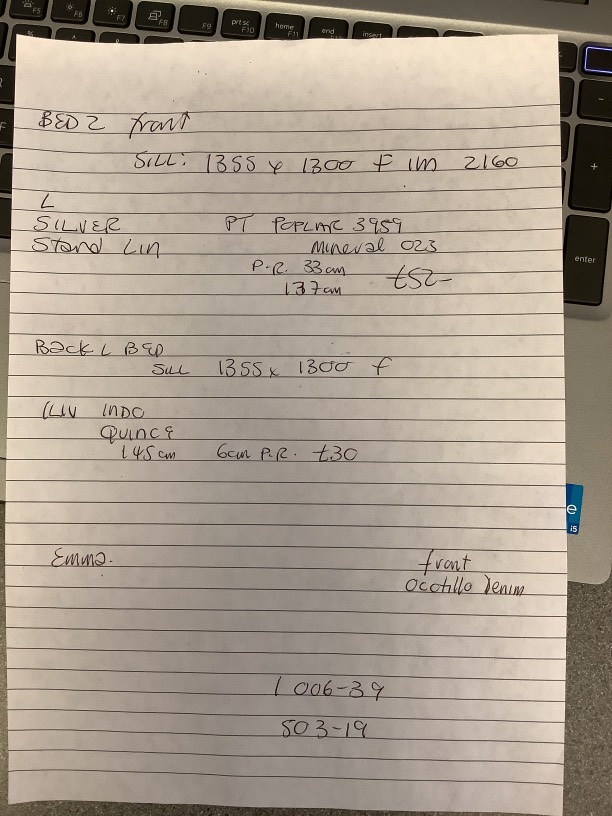 BED 2 front
SILL: 1355 x 1300 F 1m 2160
L
SILVER PT POPLAR 3959
Stand Lin Mineral 023
P.R. 33cm £52-
137cm
Back L BED
SILL 1355 x 1300 F
INDO
QUINCE
145cm 6cm P.R. £30
Emma. front
Ocotillo Denim
1 006-39
503-19
F5 F6 F7 F8 F9 prt sc F10 home F11 end insert
enter
i5